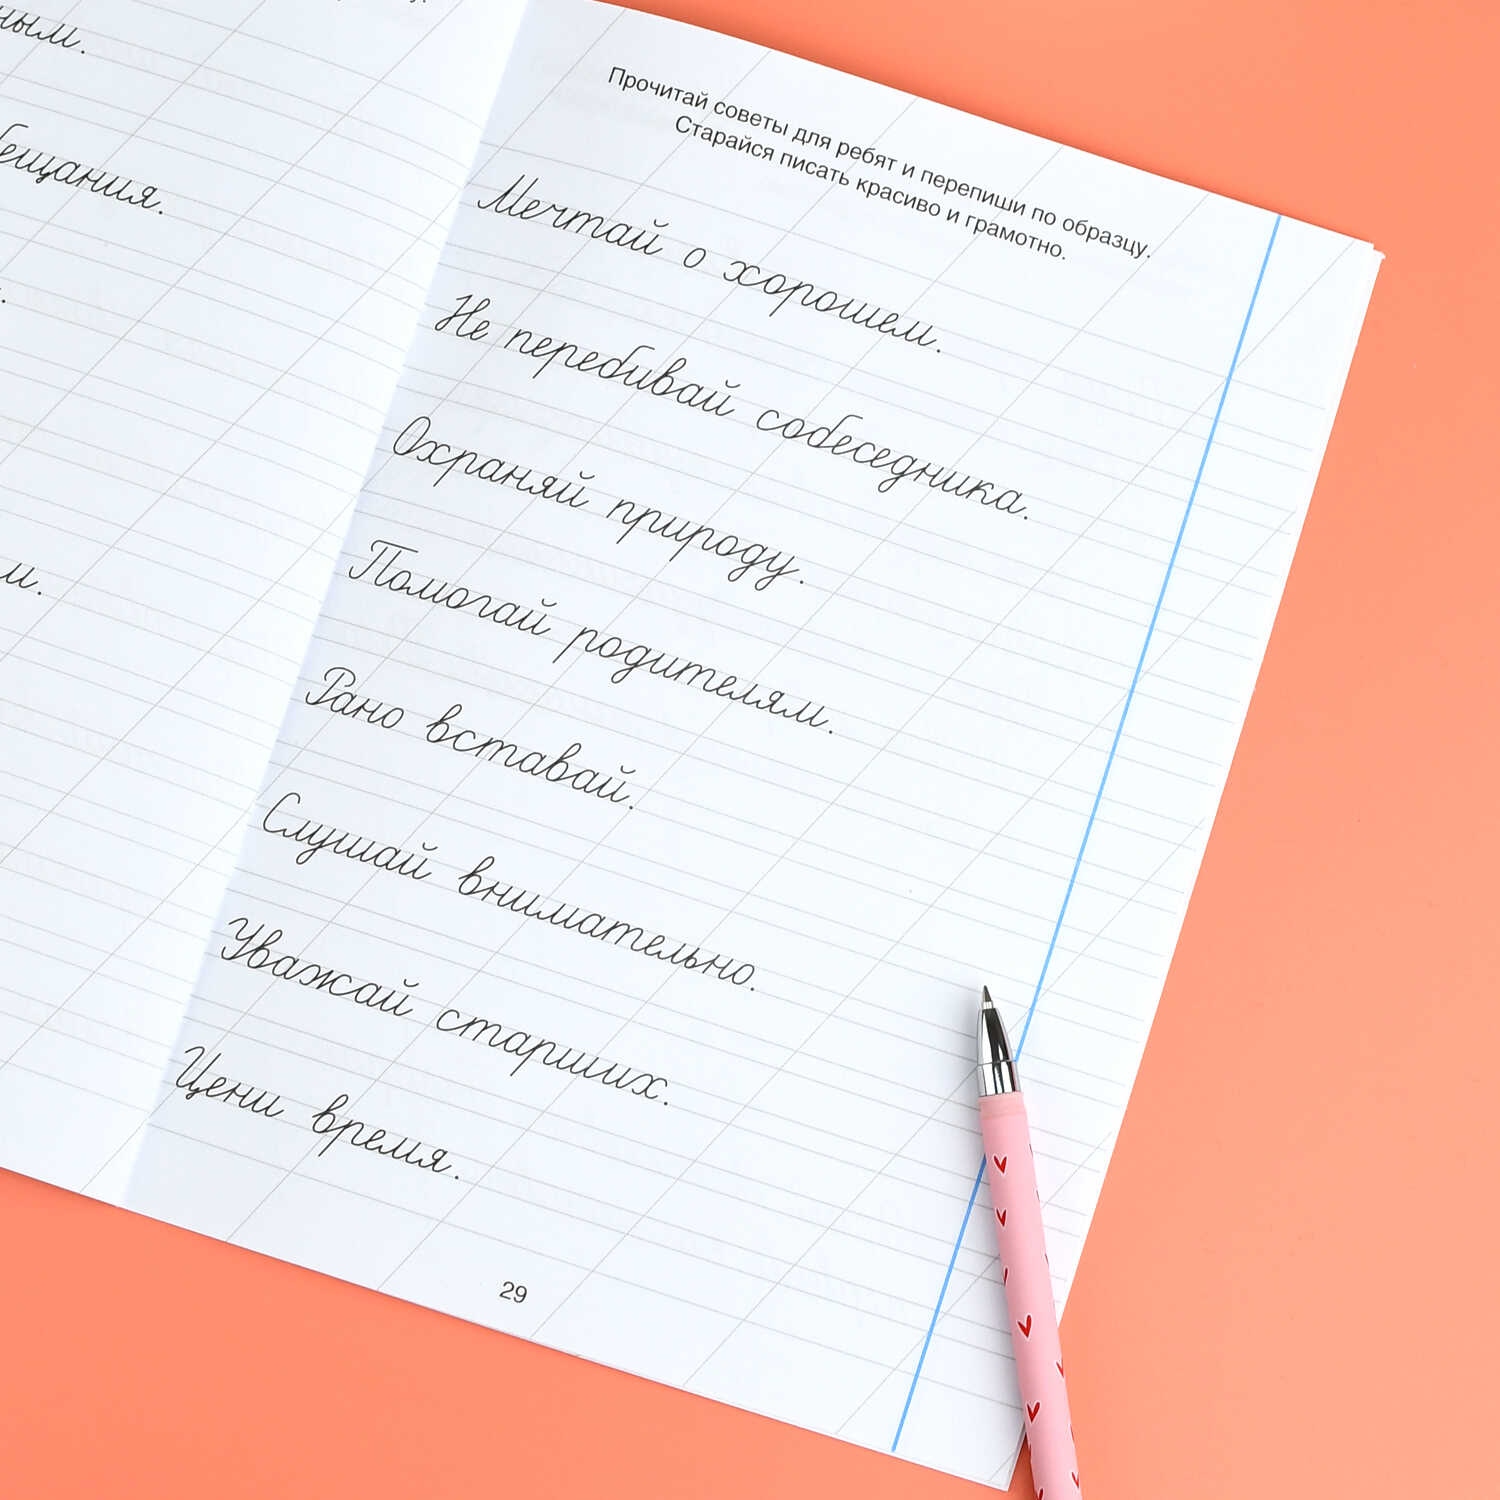 ным.
ещания.
м.
Прочитай советы для ребят и перепиши по образцу.
Старайся писать красиво и грамотно.
Мечтай о хорошем.
Не перебивай собеседника.
Охраняй природу.
Помогай родителям.
Рано вставай.
Слушай внимательно.
Уважай старших.
Цени время.
29